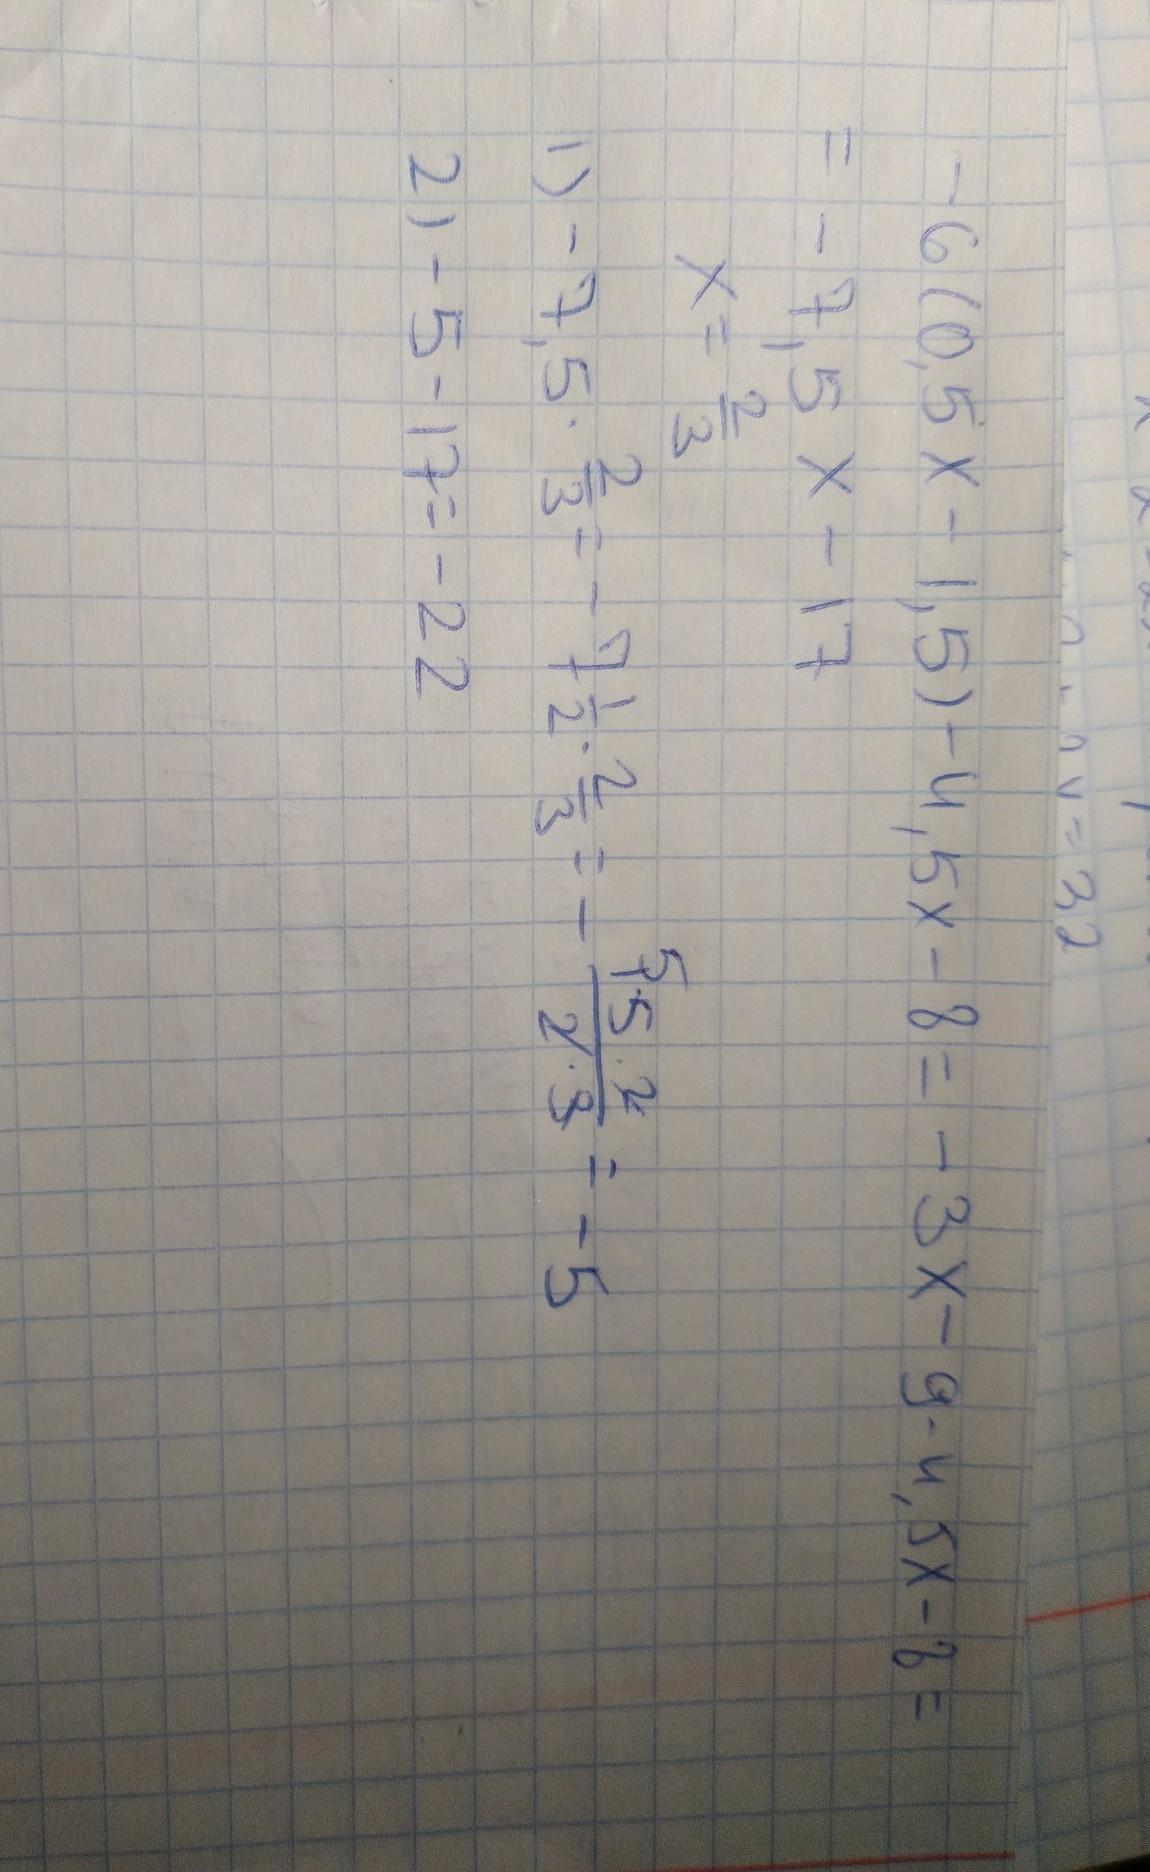 -6(0,5x-1,5)-4,5x-8=-3x-9-4,5x-8=
=-7,5x-17
x=2/3
1) -7,5·2/3=-7 1/2·2/3=-(5 15·2)/(2·3)=-5
2) -5-17=-22